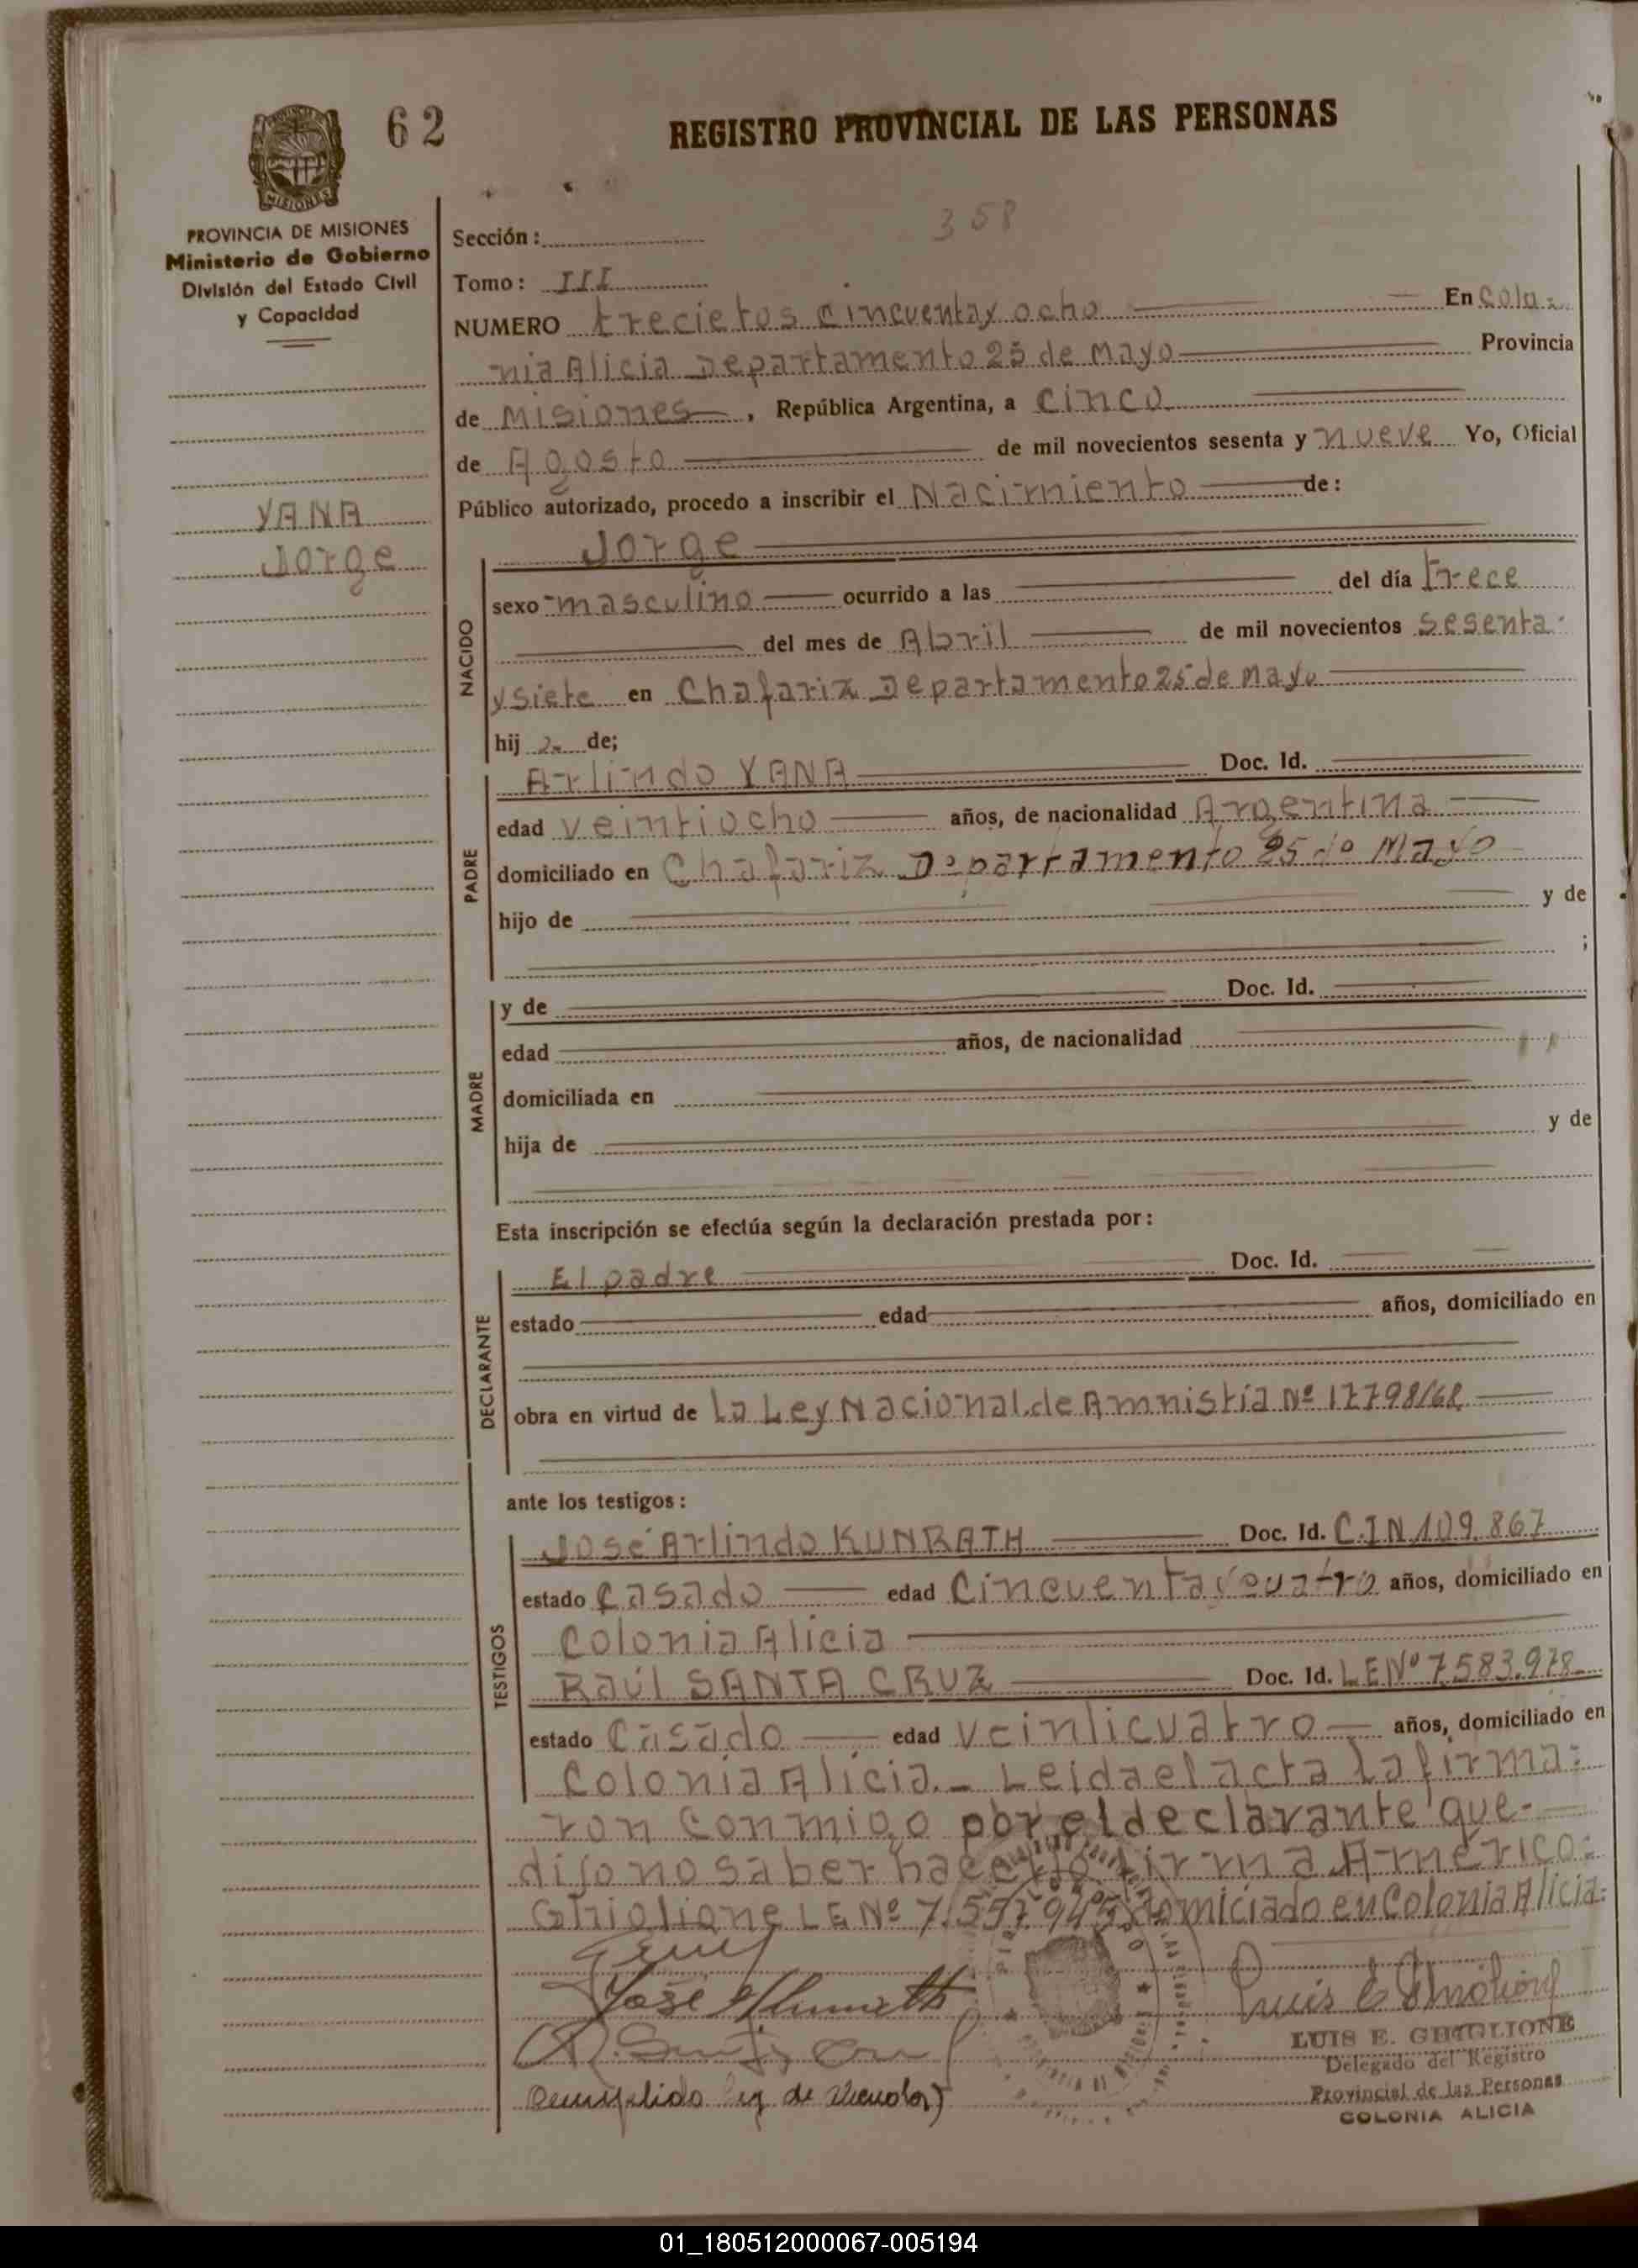 62
REGISTRO PROVINCIAL DE LAS PERSONAS
PROVINCIA DE MISIONES
Ministerio de Gobierno
División del Estado Civil
y Capacidad
YANA
Jorge
358
Sección:
Tomo: III
NUMERO trecietos cincuenta y ocho En Colo-
nia Alicia Departamento 25 de Mayo Provincia
de Misiones, República Argentina, a cinco
de Agosto de mil novecientos sesenta y nueve Yo, Oficial
Público autorizado, procedo a inscribir el Nacimiento de:
NACIDO
Jorge
sexo masculino ocurrido a las del día trece
del mes de Abril de mil novecientos sesenta
y siete en Chafariz Departamento 25 de Mayo
hij de;
PADRE
Arlindo YANA Doc. Id.
edad veintiocho años, de nacionalidad Argentina
domiciliado en Chafariz Departamento 25 de Mayo
hijo de y de
;
MADRE
y de Doc. Id.
edad años, de nacionalidad
domiciliada en
hija de y de
Esta inscripción se efectúa según la declaración prestada por:
DECLARANTE
El padre Doc. Id.
estado edad años, domiciliado en
obra en virtud de La Ley Nacional de Amnistía Nº 17798/68
ante los testigos:
TESTIGOS
José Arlindo KUNRATH Doc. Id. C.I.N 109.867
estado Casado edad Cincuenta y cuatro años, domiciliado en
Colonia Alicia
Raúl SANTA CRUZ Doc. Id. LE Nº 7.583.978
estado Casado edad veinticuatro años, domiciliado en
Colonia Alicia.- Leida el acta la firma-
ron conmigo por el declarante que
dijo no saber hacerlo firma Américo
Ghiglione LE Nº 7.557.945 domiciado en Colonia Alicia
LUIS E. GHIGLIONE
Delegado del Registro
Provincial de las Personas
COLONIA ALICIA
01_180512000067-005194